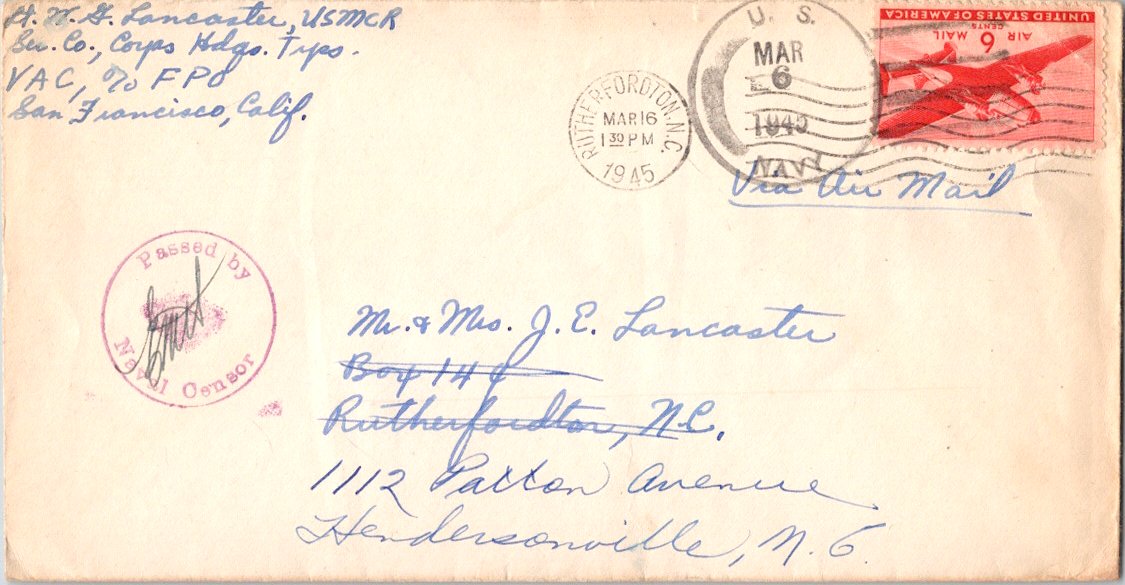 H. W. G. Lancaster, USMCR
Ser. Co., Corps Hdqs. Trps.
VAC, c/o FPO
San Francisco, Calif.
U. S.
MAR
6
1945
NAVY
RUTHERFORDTON, N.C.
MAR 16
1 30 PM
1945
UNITED STATES OF AMERICA
AIR MAIL
6 CENTS
Via Air Mail
Passed by
Naval Censor
Mr. & Mrs. J. E. Lancaster
Box 144
Rutherfordton, N.C.
1112 Patton Avenue
Hendersonville, N. C.